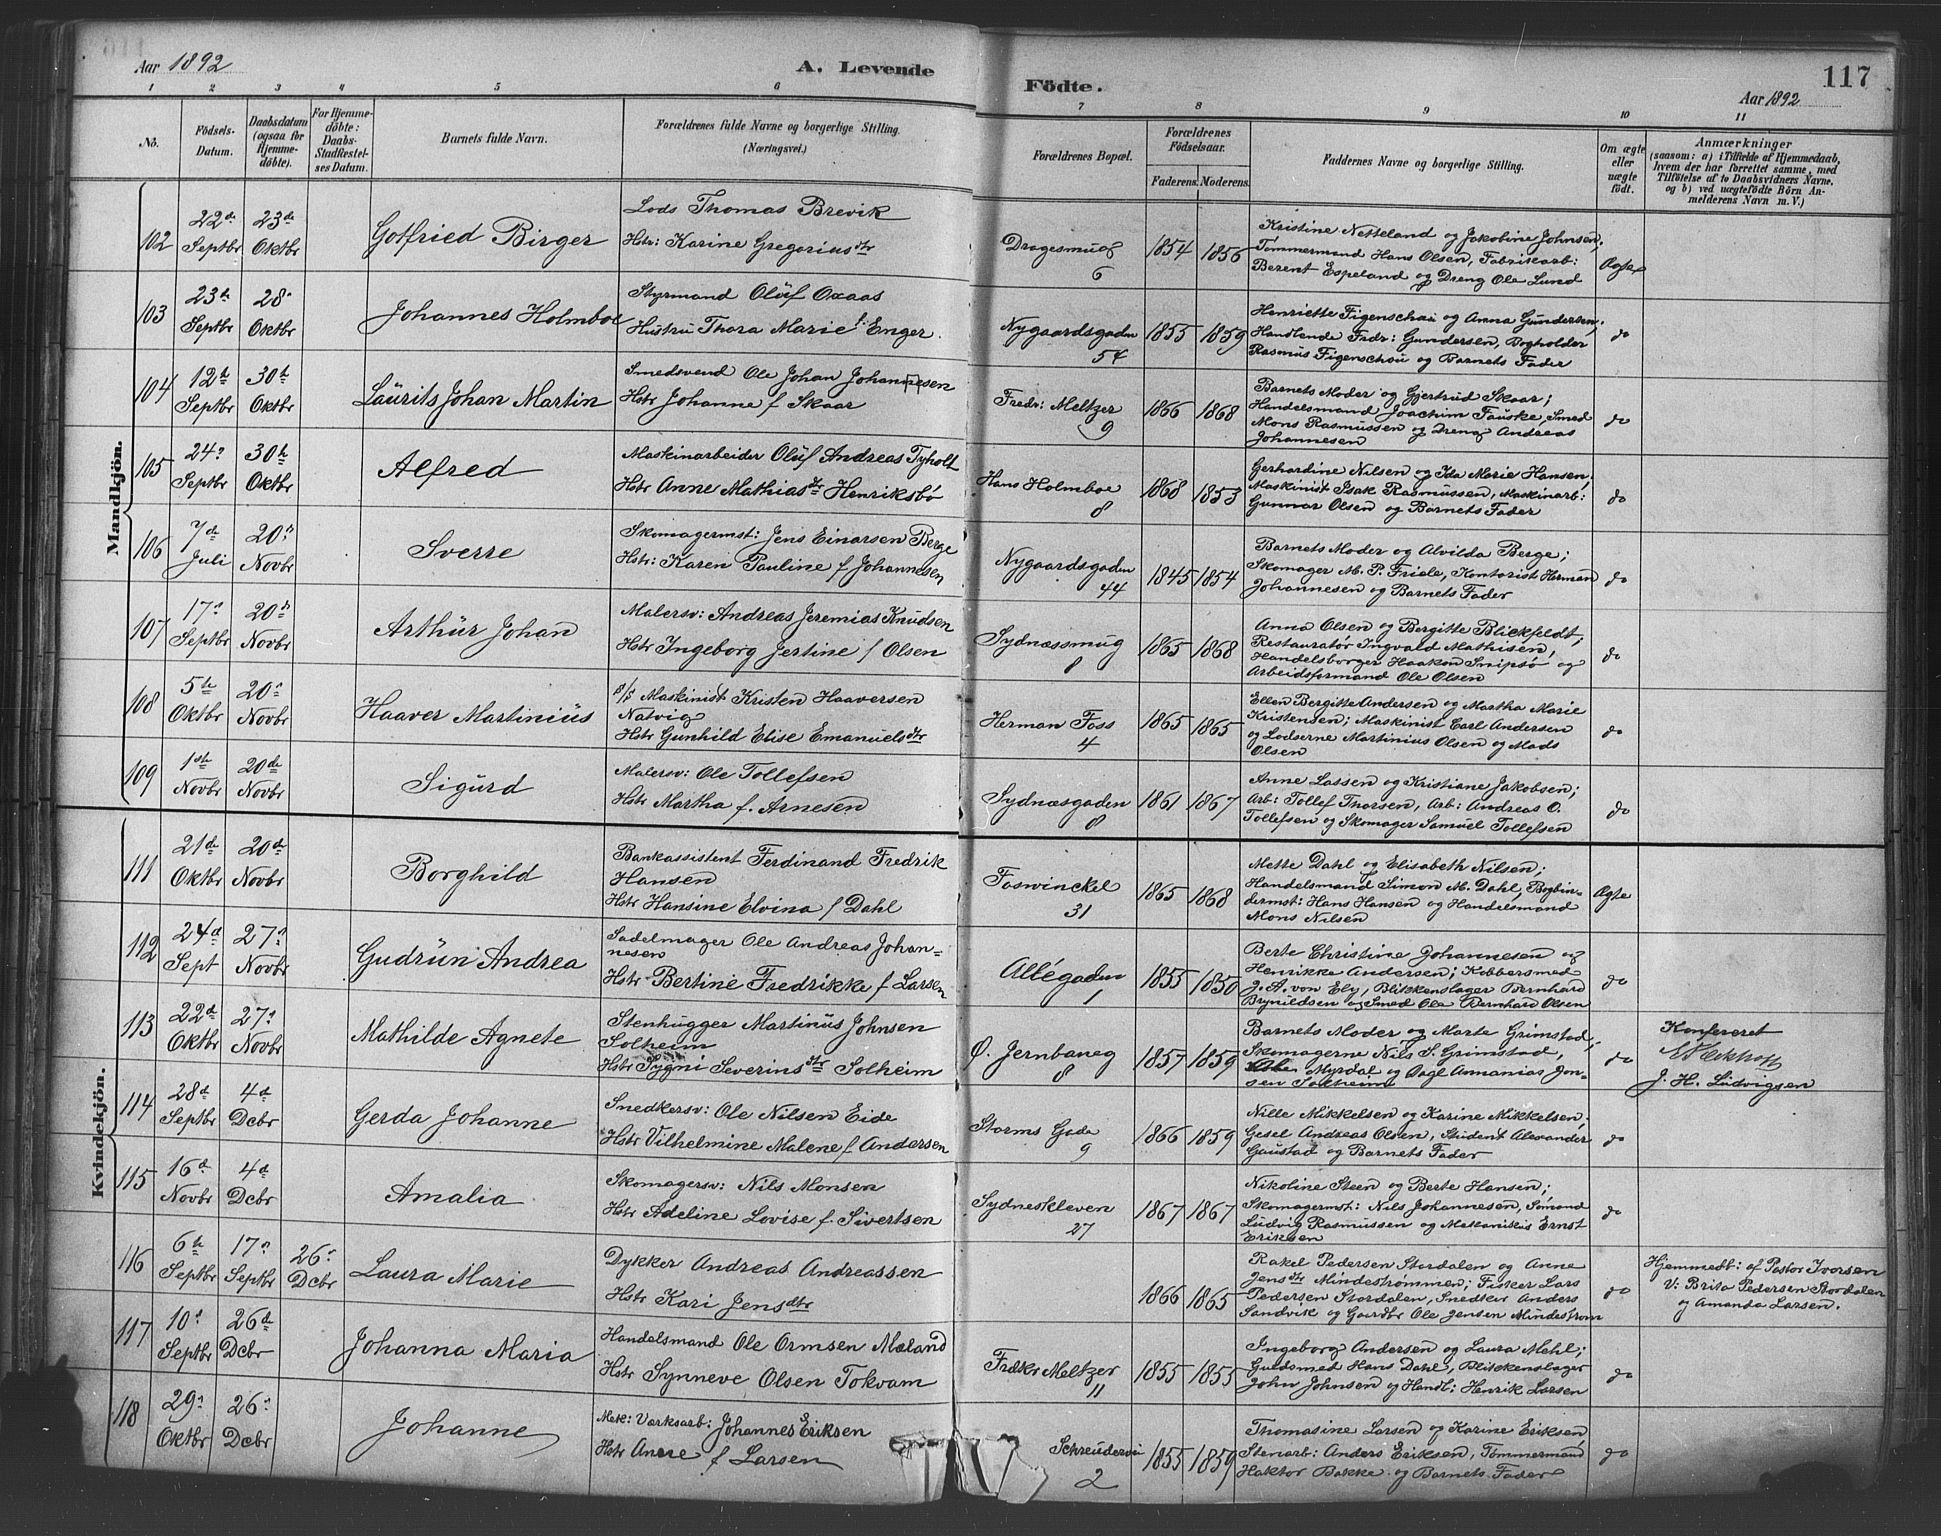 Aar 1892
A. Levende
Födte.
117
Aar 1892
1 2 3 4 5 6 7 8 9 10 11
No.
Födsels-Datum.
Daabsdatum (ogsaa for Hjemme-döbte).
For Hjemme-döbte: Daabs-Stadfæstel-ses Datum.
Barnets fulde Navn.
Forældrenes fulde Navne og borgerlige Stilling.
(Næringsvei.)
Forældrenes Bopæl.
Forældrenes Födselsaar.
Faderens. Moderens.
Faddernes Navne og borgerlige Stilling.
Om ægte eller uægte födt.
Anmærkninger
(saasom: a) i Tilfælde af Hjemmedaab,
hvem der har forrettet samme, med
Tilföielse af to Daabsvidners Navne,
og b) ved uægtefödte Börn An-
melderens Navn m. V.)
Mandkjön.
102 22de Septbr 23de Oktbr
Gotfried Birger
Lods Thomas Brevik
Hstr: Karine Gregoriusdtr
Dragesmug 6
1854 1856
Kristine Netteland og Jakobine Johnsen;
Tømmermand Hans Olsen, Fabrikarb:
Berent Espeland og Dreng Ole Lund
Ægte
103 23de Septbr 28de Oktbr
Johannes Holmboe
Styrmand Oluf Oxaas
Hustru Thora Marie f. Enger.
Nygaardsgaden 54
1855 1859
Henriette Figenschau og Anna Gundersen;
Handlende Fredr: Gundersen, Bogholder
Rasmus Figenschou og Barnets Fader
do
104 12te Septbr 30te Oktbr
Laurits Johan Martin
Smedsvend Ole Johan Johannesen
Hstr Johanne f Skaar
Fredr: Meltzer 9
1866 1868
Barnets Moder og Gjertrud Skaar;
Handelsmand Joachim Fauske, Smed
Mons Rasmussen og Dreng Andreas
Johannesen
do
105 24de Septbr 30te Oktbr
Alfred
Maskinarbeider Oluf Andreas Tyholt
Hstr Anne Mathiasdtr Henriksbö
Hans Holmboe 8
1868 1853
Gerhardine Nilsen og Ida Marie Hansen;
Maskinist Isak Rasmussen, Maskinarb:
Gunnar Olsen og Barnets Fader
do
106 7de Juli 20de Novbr
Sverre
Skomagermst: Jens Einarsen Berge
Hstr: Karen Pauline f Johannesen
Nygaardsgaden 44
1845 1854
Barnets Moder og Alvilda Berge;
Skomager M. P. Friele, Kontorist Herman
Johannesen og Barnets Fader
do
107 17de Septbr 20de Novbr
Arthur Johan
Malersv: Andreas Jeremias Knudsen
Hstr Ingeborg Jertine f Olsen
Sydnæssmug 8
1865 1868
Anna Olsen og Bergitte Blickfeldt;
Restauratør Ingvald Mathisen,
Handelsborger Haakon Smipsø og
Arbeidsformand Ole Olsen
do
108 5te Oktbr 20de Novbr
Haaver Martinius
S/S Maskinist Kristen Haaversen
Natvig
Hstr Gunhild Elise Emanuelsdtr
Herman Foss 4
1865 1865
Ellen Bergitte Andersen og Martha Marie
Kristensen; Maskinist Carl Andersen
og Lodserne Martinius Olsen og Mads
Olsen
do
109 1ste Novbr 20de Novbr
Sigurd
Malersv: Ole Tollefsen
Hstr Martha f. Arnesen
Sydnæsgaden 8
1861 1867
Anne Lassen og Kristiane Jakobsen;
Arb: Tollef Thorsen, Arb: Andreas O.
Tollefsen og Skomager Samuel Tollefsen
do
Kvindekjön.
111 21de Oktbr 20de Novbr
Borghild
Bankassistent Ferdinand Fredrik
Hansen
Hstr Hansine Elvina f Dahl
Foswinckel 31
1865 1868
Mette Dahl og Elisabeth Nilsen;
Handelsmand Simon M. Dahl, Bogbin-
dermst: Hans Hansen og Handelsmand
Mons Nilsen
Ægte
112 24d Sept 27de Novbr
Gudrun Andrea
Sadelmager Ole Andreas Johan-
nesen
Hstr Bertine Fredrikke f Larsen
Allégaden 1
1855 1850
Berte Christine Johannesen og
Henrikke Andersen; Kobbersmed
J. A. von Ely, Blikkenslager Bernhard
Brynildsen og Smed Ole Bernhard Olsen
do
113 22d Oktbr 27de Novbr
Mathilde Agnete
Stenhugger Martinus Johnsen
Solheim
Hstr Sygni Severinsdtr Solheim
Ø. Jernbaneg 8
1857 1859
Barnets Moder og Marte Grimstad;
Skomagerne Nils S. Grimstad,
Myrdal og Dagl Annanias Jon-
sen Solheim
do
Konfereret
J. H. Ludvigsen
114 28d Septbr 4d Dcbr
Gerda Johanne
Snedkersv: Ole Nilsen Eide
Hstr Vilhelmine Malene f Andersen
Storms Gade 9
1866 1859
Nille Mikkelsen og Karine Mikkelsen;
Gesel Andreas Olsen, Student Alexander
Gaustad og Barnets Fader
do
115 16d Novbr 4d Dcbr
Amalia
Skomagersv: Nils Monsen
Hstr Adeline Lovise f. Sivertsen
Sydneskleven 27
1867 1867
Nikoline Steen og Berte Hansen;
Skomagermst: Nils Johannesen, Sömand
Ludvig Rasmussen og Mekanikus Ernst
Eriksen
do
116 6te Septbr 17de Septbr 26de Dcbr
Laura Marie
Dykker Andreas Andreassen
Hstr Kari Jensdtr
1866 1865
Rakel Pedersen Stordalen og Anne
Jensdtr Mindestrømmen; Fisker Lars
Pedersen Stordalen, Snedker Anders
Sandvik og Gaardbr Ole Jensen Mindestrøm
do
Hjemmedt: af Pastor Iversen
V: Brita Pedersen Stordalen
og Amanda Larsen.
117 10de Septbr 26de Dcbr
Johanna Maria
Handelsmand Ole Ormsen Mæland
Hstr Synneve Olsen Tokvam
Fredkr Meltzer 11
1855 1855
Ingeborg Andersen og Laura Mehl;
Guldsmed Hans Dahl, Blikkenslager
John Johnsen og Handl: Henrik Larsen
do
118 29de Oktbr 26de Dcbr
Johanne
Mek: Værksarb: Johannes Eriksen
Hstr Anne f Larsen
2
1855 1859
Thomasine Larsen og Karine Eriksen
Stenarb: Anders Eriksen, Tømmermand
Haktor Bakke og Barnets Fader
do